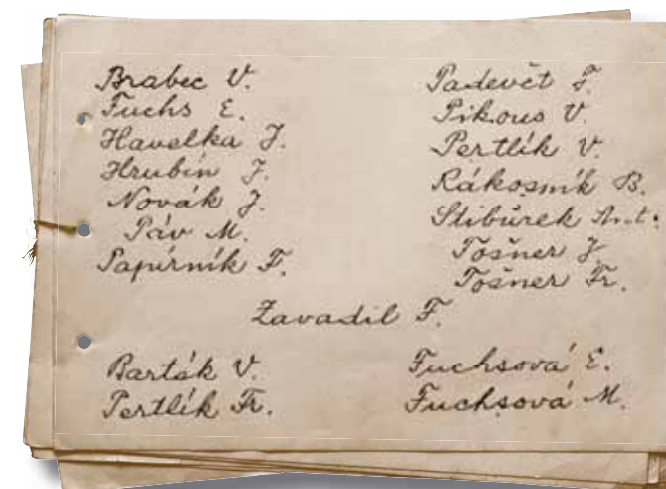 Brabec V.
Fuchs E.
Havelka J.
Hrubín J.
Novák J.
Páv M.
Papírník F.
Padevět F.
Pikous V.
Pertlík V.
Rákosník B.
Stibůrek Ant.
Tošner J.
Tošner Fr.
Zavadil F.
Barták V.
Pertlík Fr.
Fuchsová E.
Fuchsová M.